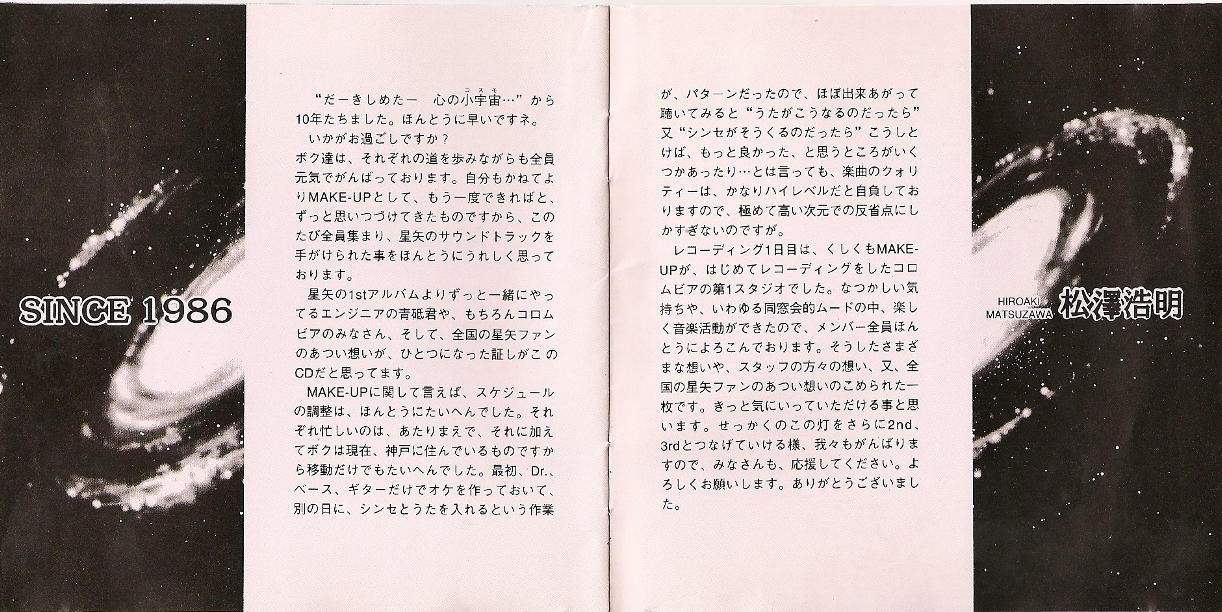 SINCE 1986
“だーきしめたー　心の小宇宙…” から
コスモ
10年たちました。ほんとうに早いですネ。
いかがお過ごしですか？
ボク達は、それぞれの道を歩みながらも全員
元気でがんばっております。自分もかねてよ
りMAKE-UPとして、もう一度できればと、
ずっと思いつづけてきたものですから、この
たび全員集まり、星矢のサウンドトラックを
手がけられた事をほんとうにうれしく思って
おります。
星矢の1stアルバムよりずっと一緒にやっ
てるエンジニアの青砥君や、もちろんコロム
ビアのみなさん、そして、全国の星矢ファン
のあつい想いが、ひとつになった証しがこの
CDだと思ってます。
MAKE-UPに関して言えば、スケジュール
の調整は、ほんとうにたいへんでした。それ
ぞれ忙しいのは、あたりまえで、それに加え
てボクは現在、神戸に住んでいるものですか
ら移動だけでもたいへんでした。最初、Dr.、
ベース、ギターだけでオケを作っておいて、
別の日に、シンセとうたを入れるという作業
が、パターンだったので、ほぼ出来あがって
聴いてみると “うたがこうなるのだったら”
又 “シンセがそうくるのだったら” こうしと
けば、もっと良かった、と思うところがいく
つかあったり…とは言っても、楽曲のクォリ
ティーは、かなりハイレベルだと自負してお
りますので、極めて高い次元での反省点にし
かすぎないのですが。
レコーディング1日目は、くしくもMAKE-
UPが、はじめてレコーディングをしたコロ
ムビアの第1スタジオでした。なつかしい気
持ちや、いわゆる同窓会的ムードの中、楽し
く音楽活動ができたので、メンバー全員ほん
とうによろこんでおります。そうしたさまざ
まな想いや、スタッフの方々の想い、又、全
国の星矢ファンのあつい想いのこめられた一
枚です。きっと気にいっていただける事と思
います。せっかくのこの灯をさらに2nd、
3rdとつなげていける様、我々もがんばりま
すので、みなさんも、応援してください。よ
ろしくお願いします。ありがとうございまし
た。
HIROAKI
MATSUZAWA
松澤浩明